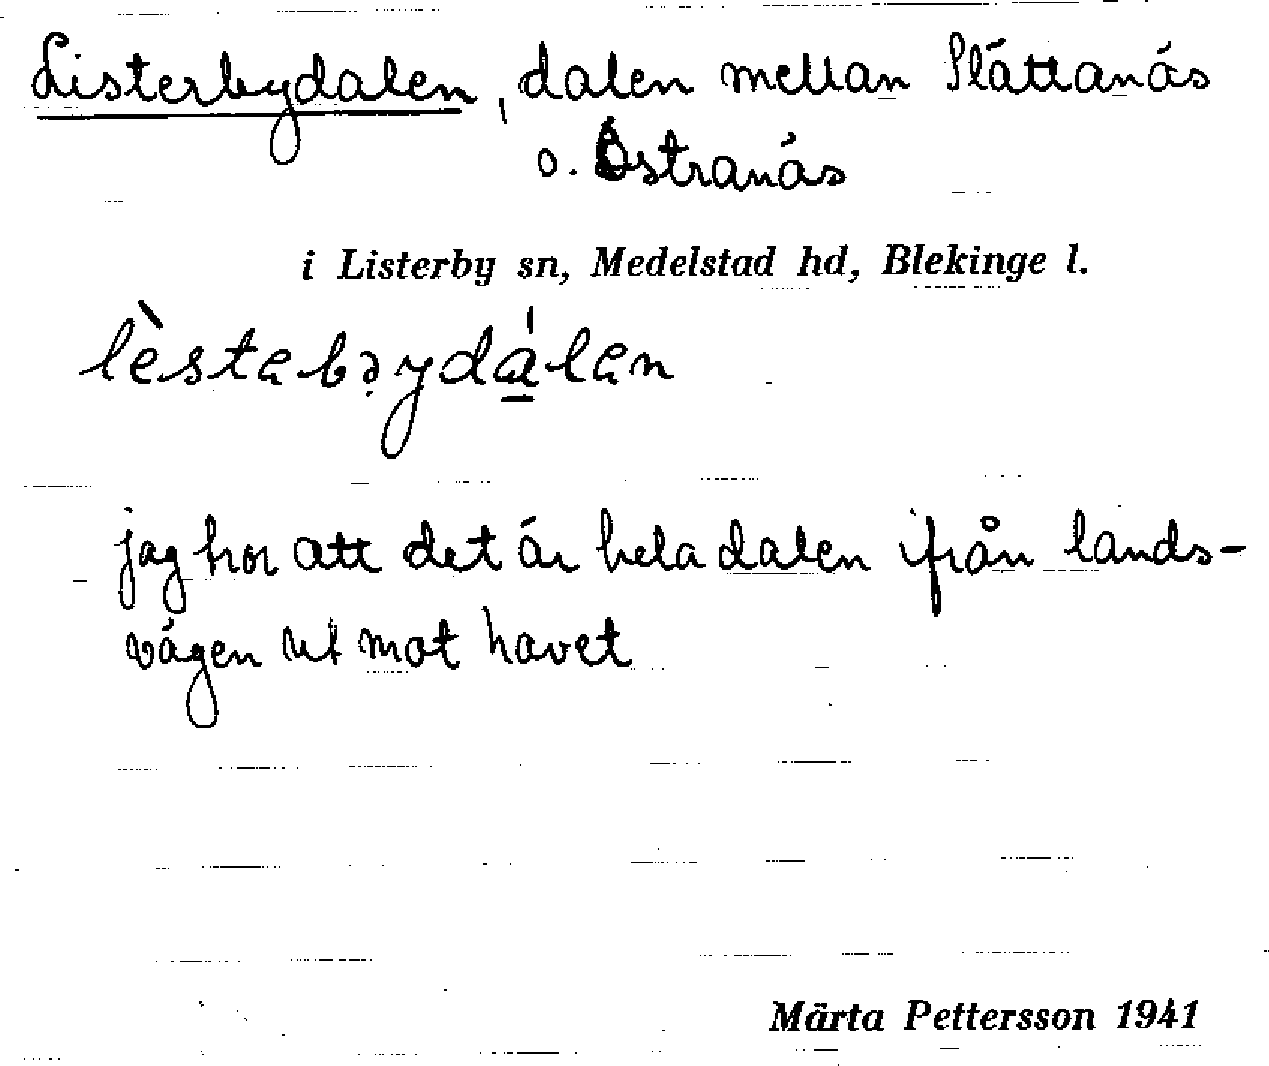 Listerbydalen, dalen mellan Slättanäs
o. Östranäs
i Listerby sn, Medelstad hd, Blekinge l.
lèstabəydálan
jag hor att det är hela dalen ifrån lands-
vägen ut mot havet
Märta Pettersson 1941